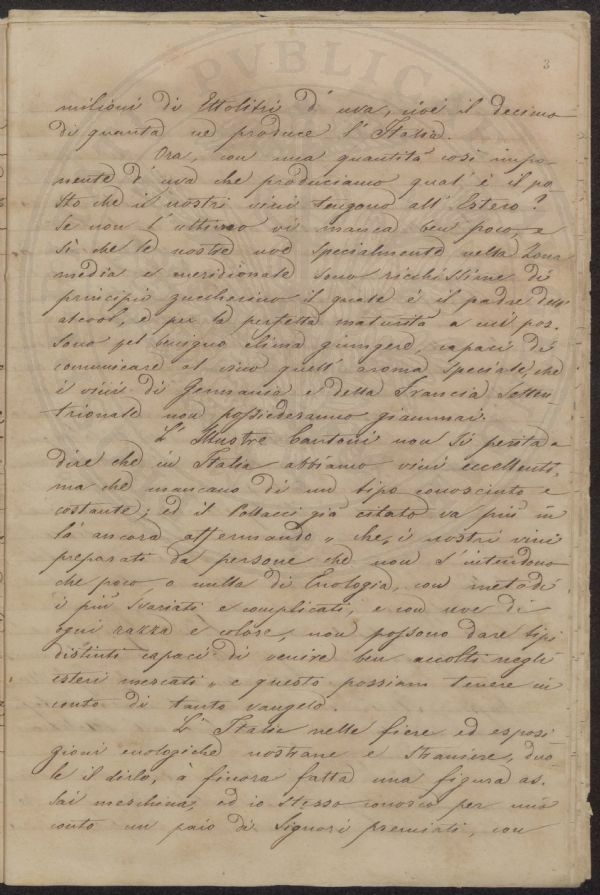 3
milioni di Ettolitri d'uva, cioè il decimo
di quanta ne produce l'Italia.
Ora, con una quantità così impo-
nente d'uva che produciamo qual'è il po-
sto che i nostri vini tengono all'Estero?
Se non l'ultimo vi manca ben poco, e
sì che le nostre uve specialmente nella Zona
media e meridionale sono ricchissime di
principio zuccherino il quale è il padre dell'
alcool, e per la perfetta maturità a cui pos-
sono pel benigno clima giungere, capaci di
comunicare al vino quell'aroma speciale, che
i vini di Germania e della Francia Setten-
trionale non possiederanno giammai.
L'Illustre Cantoni non si perita a
dire che in Italia abbiamo vini eccellenti,
ma che mancano di un tipo conosciuto e
costante; ed il Pollacci già citato va più in
là ancora affermando „ che, i nostri vini
preparati da persone che non s'intendono
che poco o nulla di Enologia, con metodi
i più svariati e complicati, e con uve di
ogni razza e colore, non possono dare tipi
distinti capaci di venire ben accolti negli
esteri mercati „ e questo possiam tenere in
conto di tanto vangelo.
L'Italia nelle fiere ed esposi
zioni enologiche nostrane e straniere, duo
le il dirlo, à finora fatta una figura as-
sai meschina, ed io stesso conosco per mio
conto un paio di Signori premiati, con